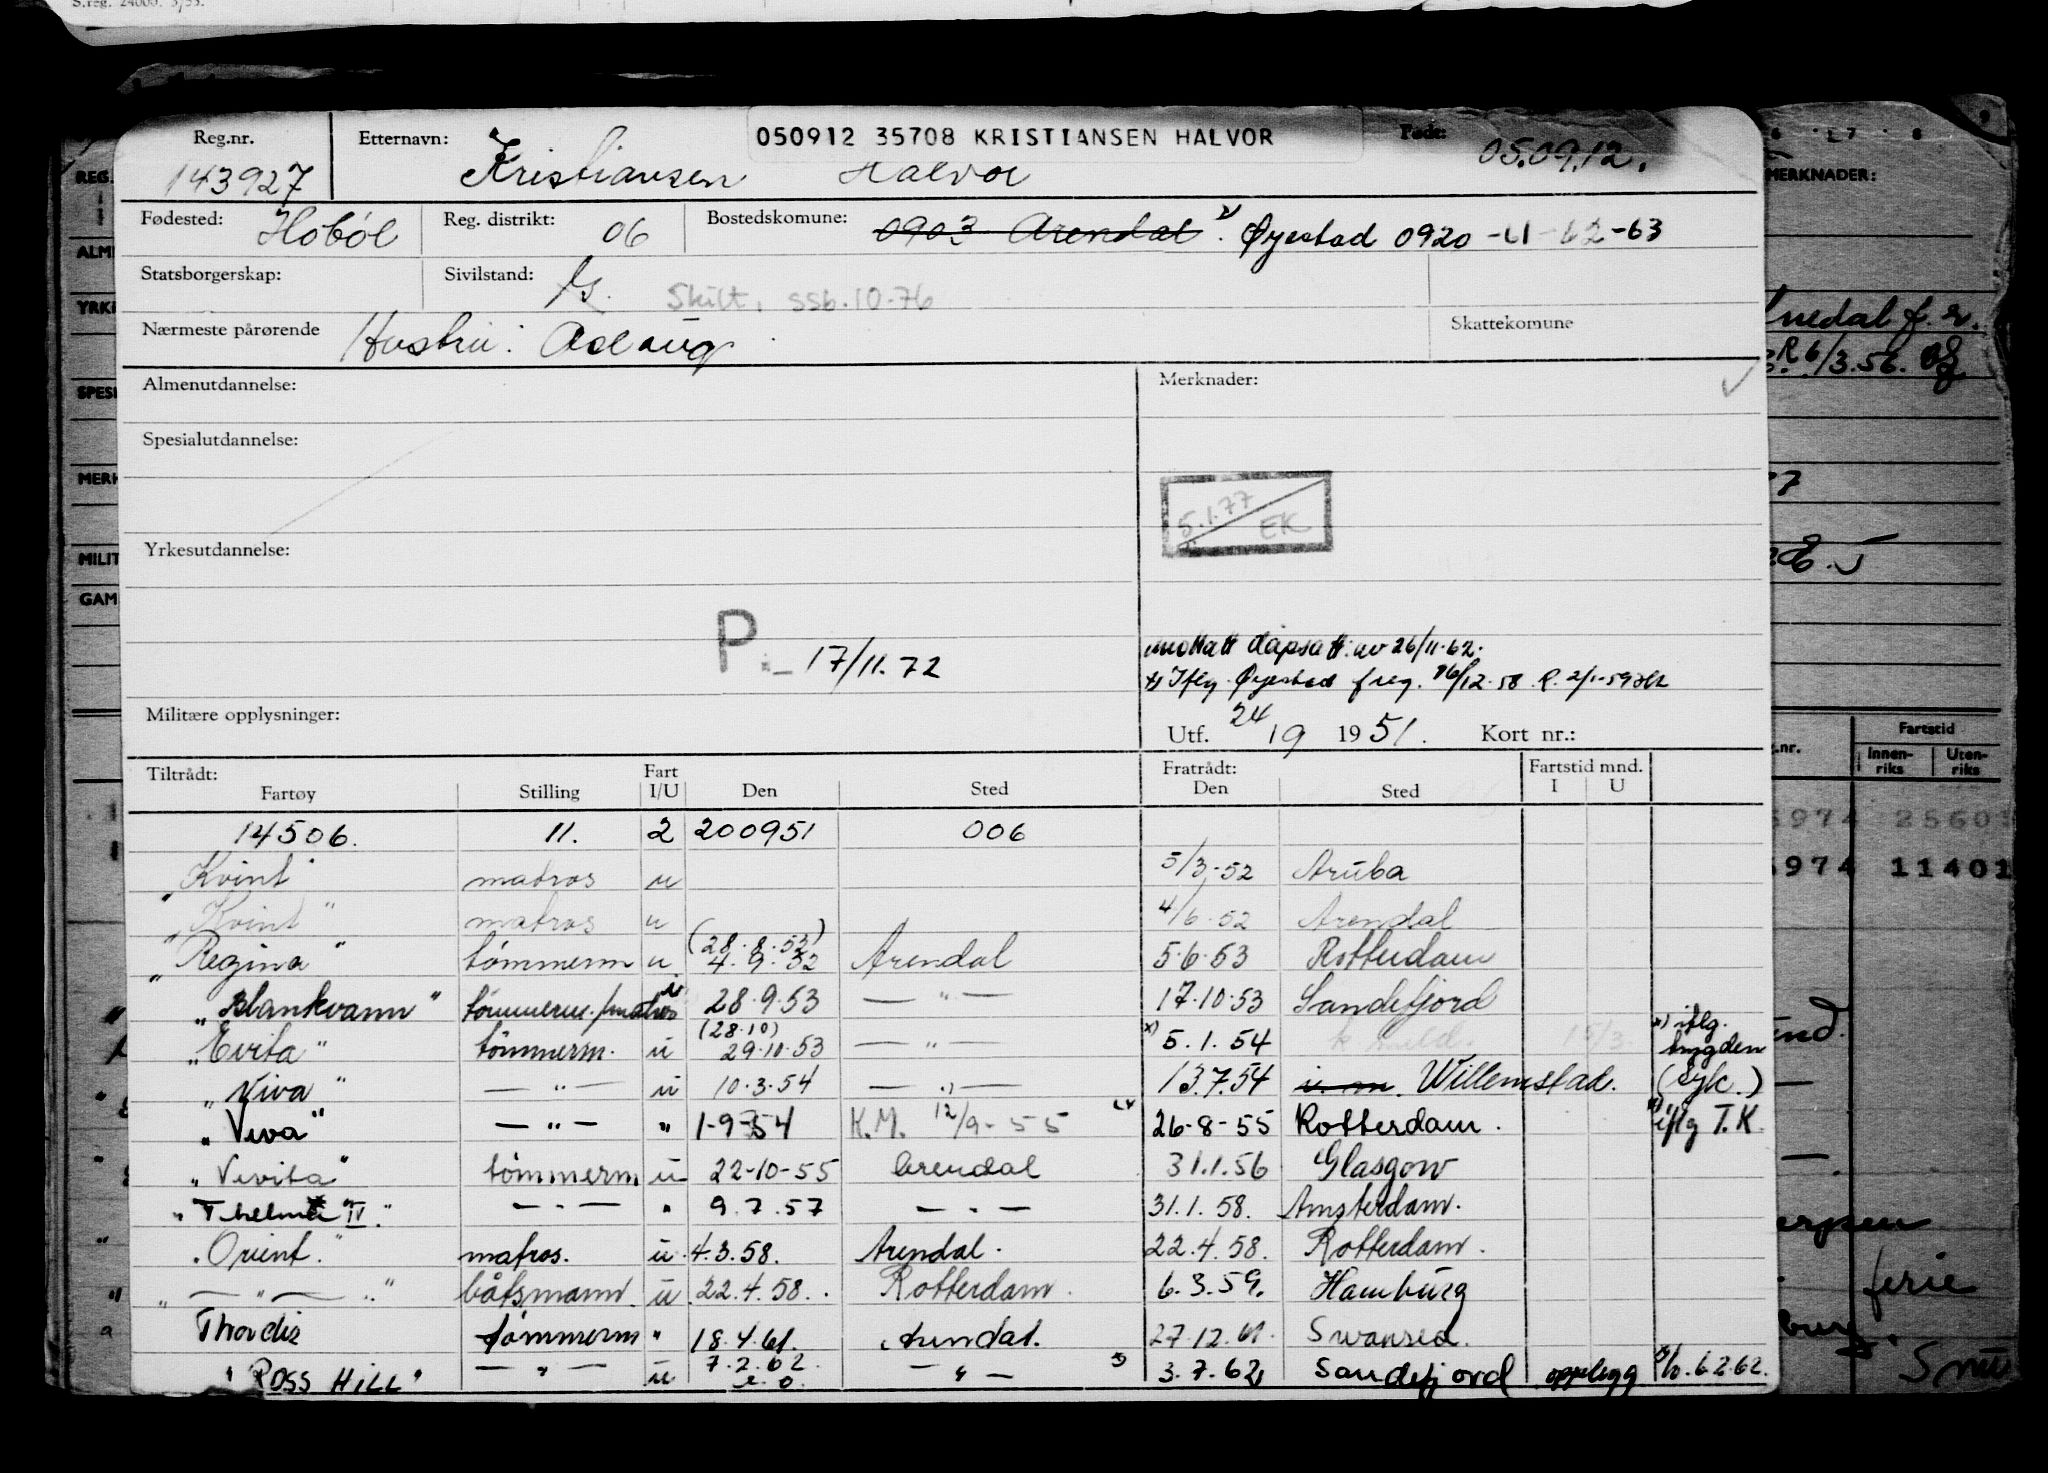 S.reg. 24000. 3/53.
Reg.nr. Etternavn: 050912 35708 KRISTIANSEN HALVOR Født: 05.09.12.
143927 Kristiansen Halvor
Fødested: Hobøl Reg. distrikt: 06 Bostedskomune: 0903 Arendal Øyestad 0920 -61-62-63
Statsborgerskap: Sivilstand: G. Skilt, SSB.10.76
Nærmeste pårørende Hustru: Aslaug Skattekomune
Almenutdannelse: Merknader:
Spesialutdannelse:
5.1.77 EK
Yrkesutdannelse:
P. 17/11.72
mottatt dåpsatt. av 26/11.62.
Iflg. Øyestad freg. 16/12.58. R. 2/1-59
Militære opplysninger: Utf. 24/9 1951. Kort nr.:
Tiltrådt: Fart Fratrådt: Fartstid mnd.
Fartøy Stilling I/U Den Sted Den Sted I U
14506. 11. 2 200951 006
"Kvint" matros u 5/3-52 Aruba
"Kvint" matros u 4/6.52 Arendal
(28.8.52)
"Regina" tømmerm u 4.9.52 Arendal 5.6.53 Rotterdam
"Blankvann" tømmerm./matros u 28.9.53 — " — 17.10.53 Sandefjord
(28.10) x) iflg.
"Evita" tømmerm. u 29.10.53 — " — x) 5.1.54 hygden
"Viva" — " — u 10.3.54 — " — 13.7.54 Willemstad. (syk.)
"Viva" — " — " 1-9-54 K.M. 12/9-55 26-8-55 Rotterdam. iflg T.K.
"Vivita" tømmerm u 22-10-55 Arendal 31.1.56 Glasgow
"Thelma IV." — " — " 9.7.57 — " — 31.1.58. Amsterdam.
"Orient." matros. u. 4.3.58. Arendal. 22.4.58. Rotterdam.
" — " — " båtsmann. u. 22.4.58. Rotterdam. 6.3.59. Hamburg
Thordis tømmerm " 18.4.61. Arendal. 27.12.61. Swansea.
"ROSS HILL" — " — u 7.2.62. — " — 3.7.62 Sandefjord opplegg 6.2.62.
MERKNADER:
R 6/3.56.
Fartstid
Innenriks Utenriks
974 2560
974 11401
ferie